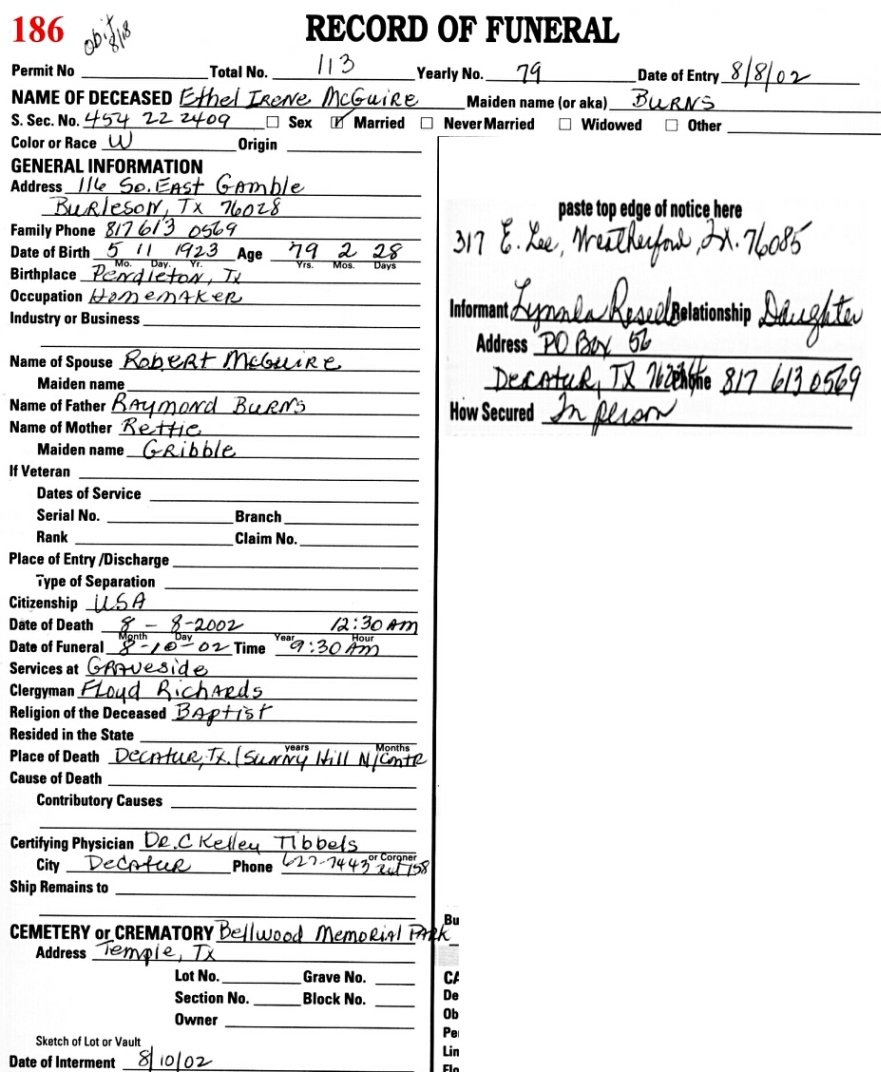 186 obit 8/18 RECORD OF FUNERAL
Permit No Total No. 113 Yearly No. 79 Date of Entry 8/8/02
NAME OF DECEASED Ethel Irene McGuire Maiden name (or aka) Burns
S. Sec. No. 454 22 2409 ☐ Sex ☑ Married ☐ Never Married ☐ Widowed ☐ Other
Color or Race W Origin
GENERAL INFORMATION
Address 116 So. East Gamble
Burleson, Tx 76028
Family Phone 817 613 0569
Date of Birth 5 11 1923 Age 79 2 28
Mo. Day. Yr. Yrs. Mos. Days
Birthplace Pendleton, Tx
Occupation Homemaker
Industry or Business
Name of Spouse Robert McGuire
Maiden name
Name of Father Raymond Burns
Name of Mother Rettie
Maiden name Gribble
If Veteran
Dates of Service
Serial No. Branch
Rank Claim No.
Place of Entry /Discharge
Type of Separation
Citizenship USA
Date of Death 8 - 8-2002 12:30 AM
Month Day Year Hour
Date of Funeral 8-10-02 Time 9:30 AM
Services at Graveside
Clergyman Floyd Richards
Religion of the Deceased Baptist
Resided in the State
years Months
Place of Death Decatur, Tx. (Sunny Hill N/Cntr
Cause of Death
Contributory Causes
Certifying Physician Dr. C Kelley Tibbels
or Coroner
City Decatur Phone 627-7443 ext 158
Ship Remains to
CEMETERY or CREMATORY Bellwood Memorial Park
Address Temple, Tx
Lot No. Grave No.
Section No. Block No.
Owner
Sketch of Lot or Vault
Date of Interment 8/10/02
paste top edge of notice here
317 E. Lee, Weatherford, Tx. 76085
Informant Relationship Daughter
Address PO Box 56
Decatur, TX Phone 817 613 0569
How Secured In person
Bu
CA
De
Ob
Pe
Lin
Flo